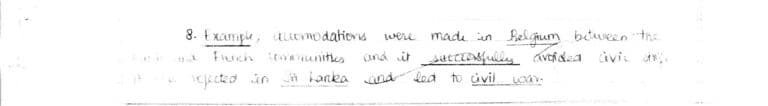 8. Example, accomodations were made in Belgium between the
and French communities and it successfully avoided civic
rejected in Sri Lanka and led to civil war.